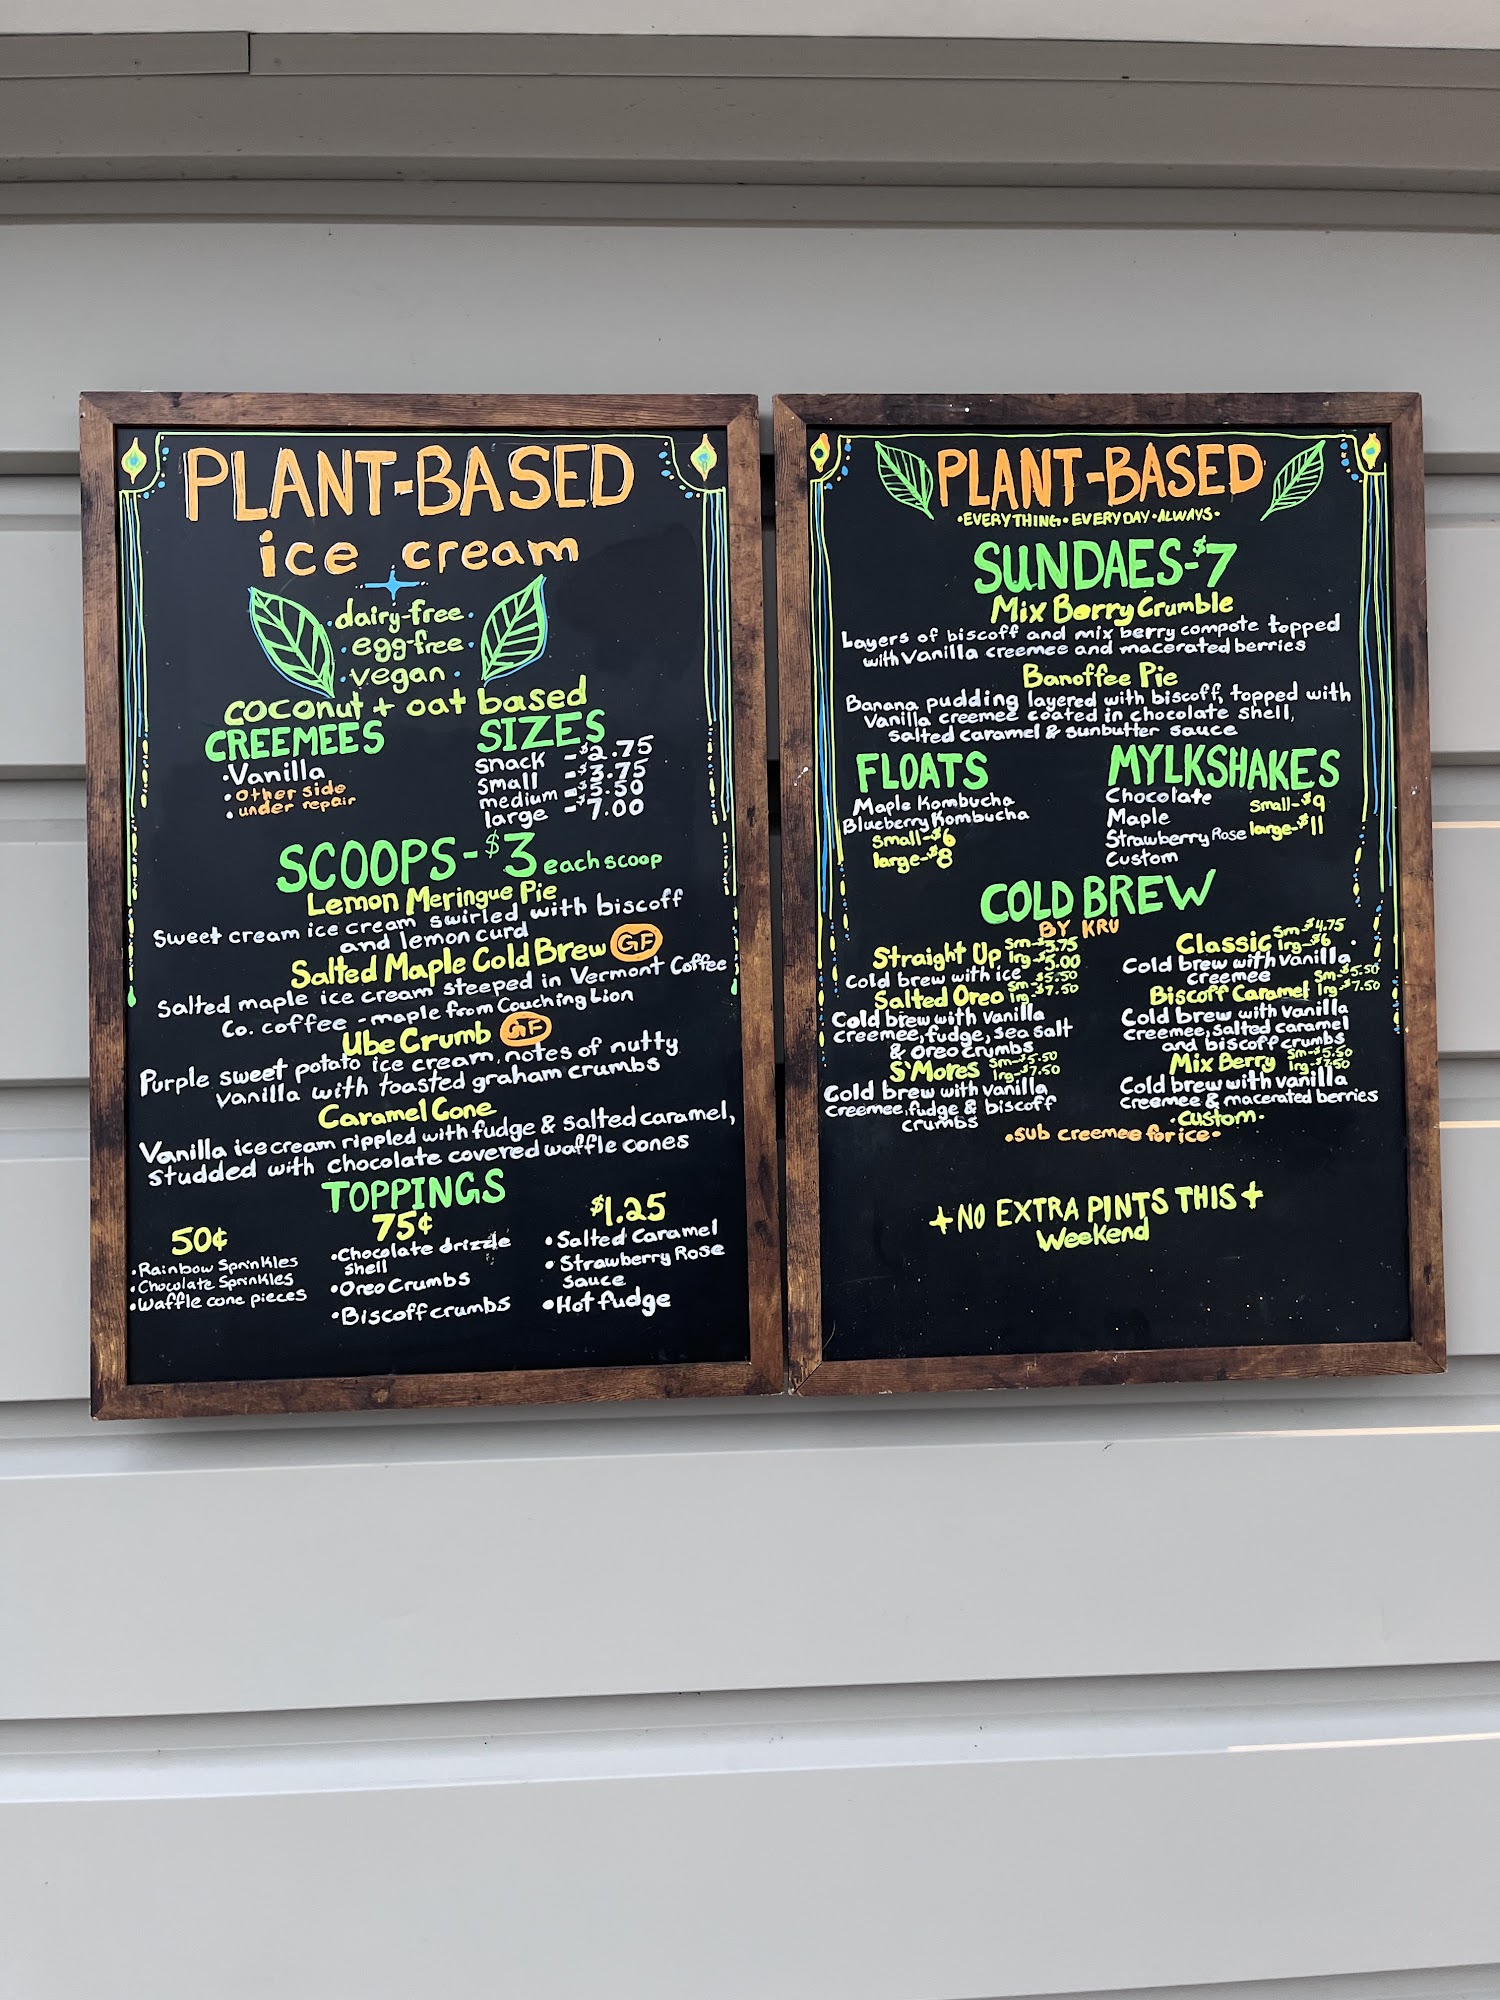 PLANT-BASED
ice cream
·dairy-free·
·egg-free·
·vegan·
coconut + oat based
CREEMEES
·Vanilla
·other side
·under repair
SIZES
snack - $2.75
small - $3.75
medium - $5.50
large - $7.00
SCOOPS - $3 each scoop
Lemon Meringue Pie
Sweet cream ice cream swirled with biscoff
and lemon curd
Salted Maple Cold Brew GF
Salted maple ice cream steeped in Vermont Coffee
Co. coffee - maple from Couching Lion
Ube Crumb GF
Purple sweet potato ice cream, notes of nutty
vanilla with toasted graham crumbs
Caramel Cone
Vanilla ice cream rippled with fudge & salted caramel,
studded with chocolate covered waffle cones
TOPPINGS
50¢
·Rainbow Sprinkles
·Chocolate Sprinkles
·Waffle cone pieces
75¢
·Chocolate drizzle
shell
·Oreo Crumbs
·Biscoff crumbs
$1.25
·Salted Caramel
·Strawberry Rose
Sauce
·Hot fudge
PLANT-BASED
·EVERYTHING·EVERYDAY·ALWAYS·
SUNDAES-$7
Mix Berry Crumble
Layers of biscoff and mix berry compote topped
with Vanilla creemee and macerated berries
Banoffee Pie
Banana pudding layered with biscoff, topped with
Vanilla creemee coated in chocolate shell,
salted caramel & sunbutter sauce
FLOATS
Maple Kombucha
Blueberry Kombucha
small-$6
large-$8
MYLKSHAKES
Chocolate
Maple
Strawberry Rose
Custom
small-$9
large-$11
COLD BREW
BY KRU
Straight Up sm-$3.75
lrg-$5.00
Cold brew with ice
Salted Oreo sm-$5.50
lrg-$7.50
Cold brew with Vanilla
creemee, fudge, sea salt
& oreo crumbs
S'Mores sm-$5.50
lrg-$7.50
Cold brew with vanilla
creemee, fudge & biscoff
crumbs
Classic sm-$4.75
lrg-$6
Cold brew with vanilla
creemee
Biscoff Caramel sm-$5.50
lrg-$7.50
Cold brew with vanilla
creemee, salted caramel
and biscoff crumbs
Mix Berry sm-$5.50
lrg-$7.50
Cold brew with vanilla
creemee & macerated berries
·custom·
·sub creemee for ice·
+NO EXTRA PINTS THIS+
Weekend